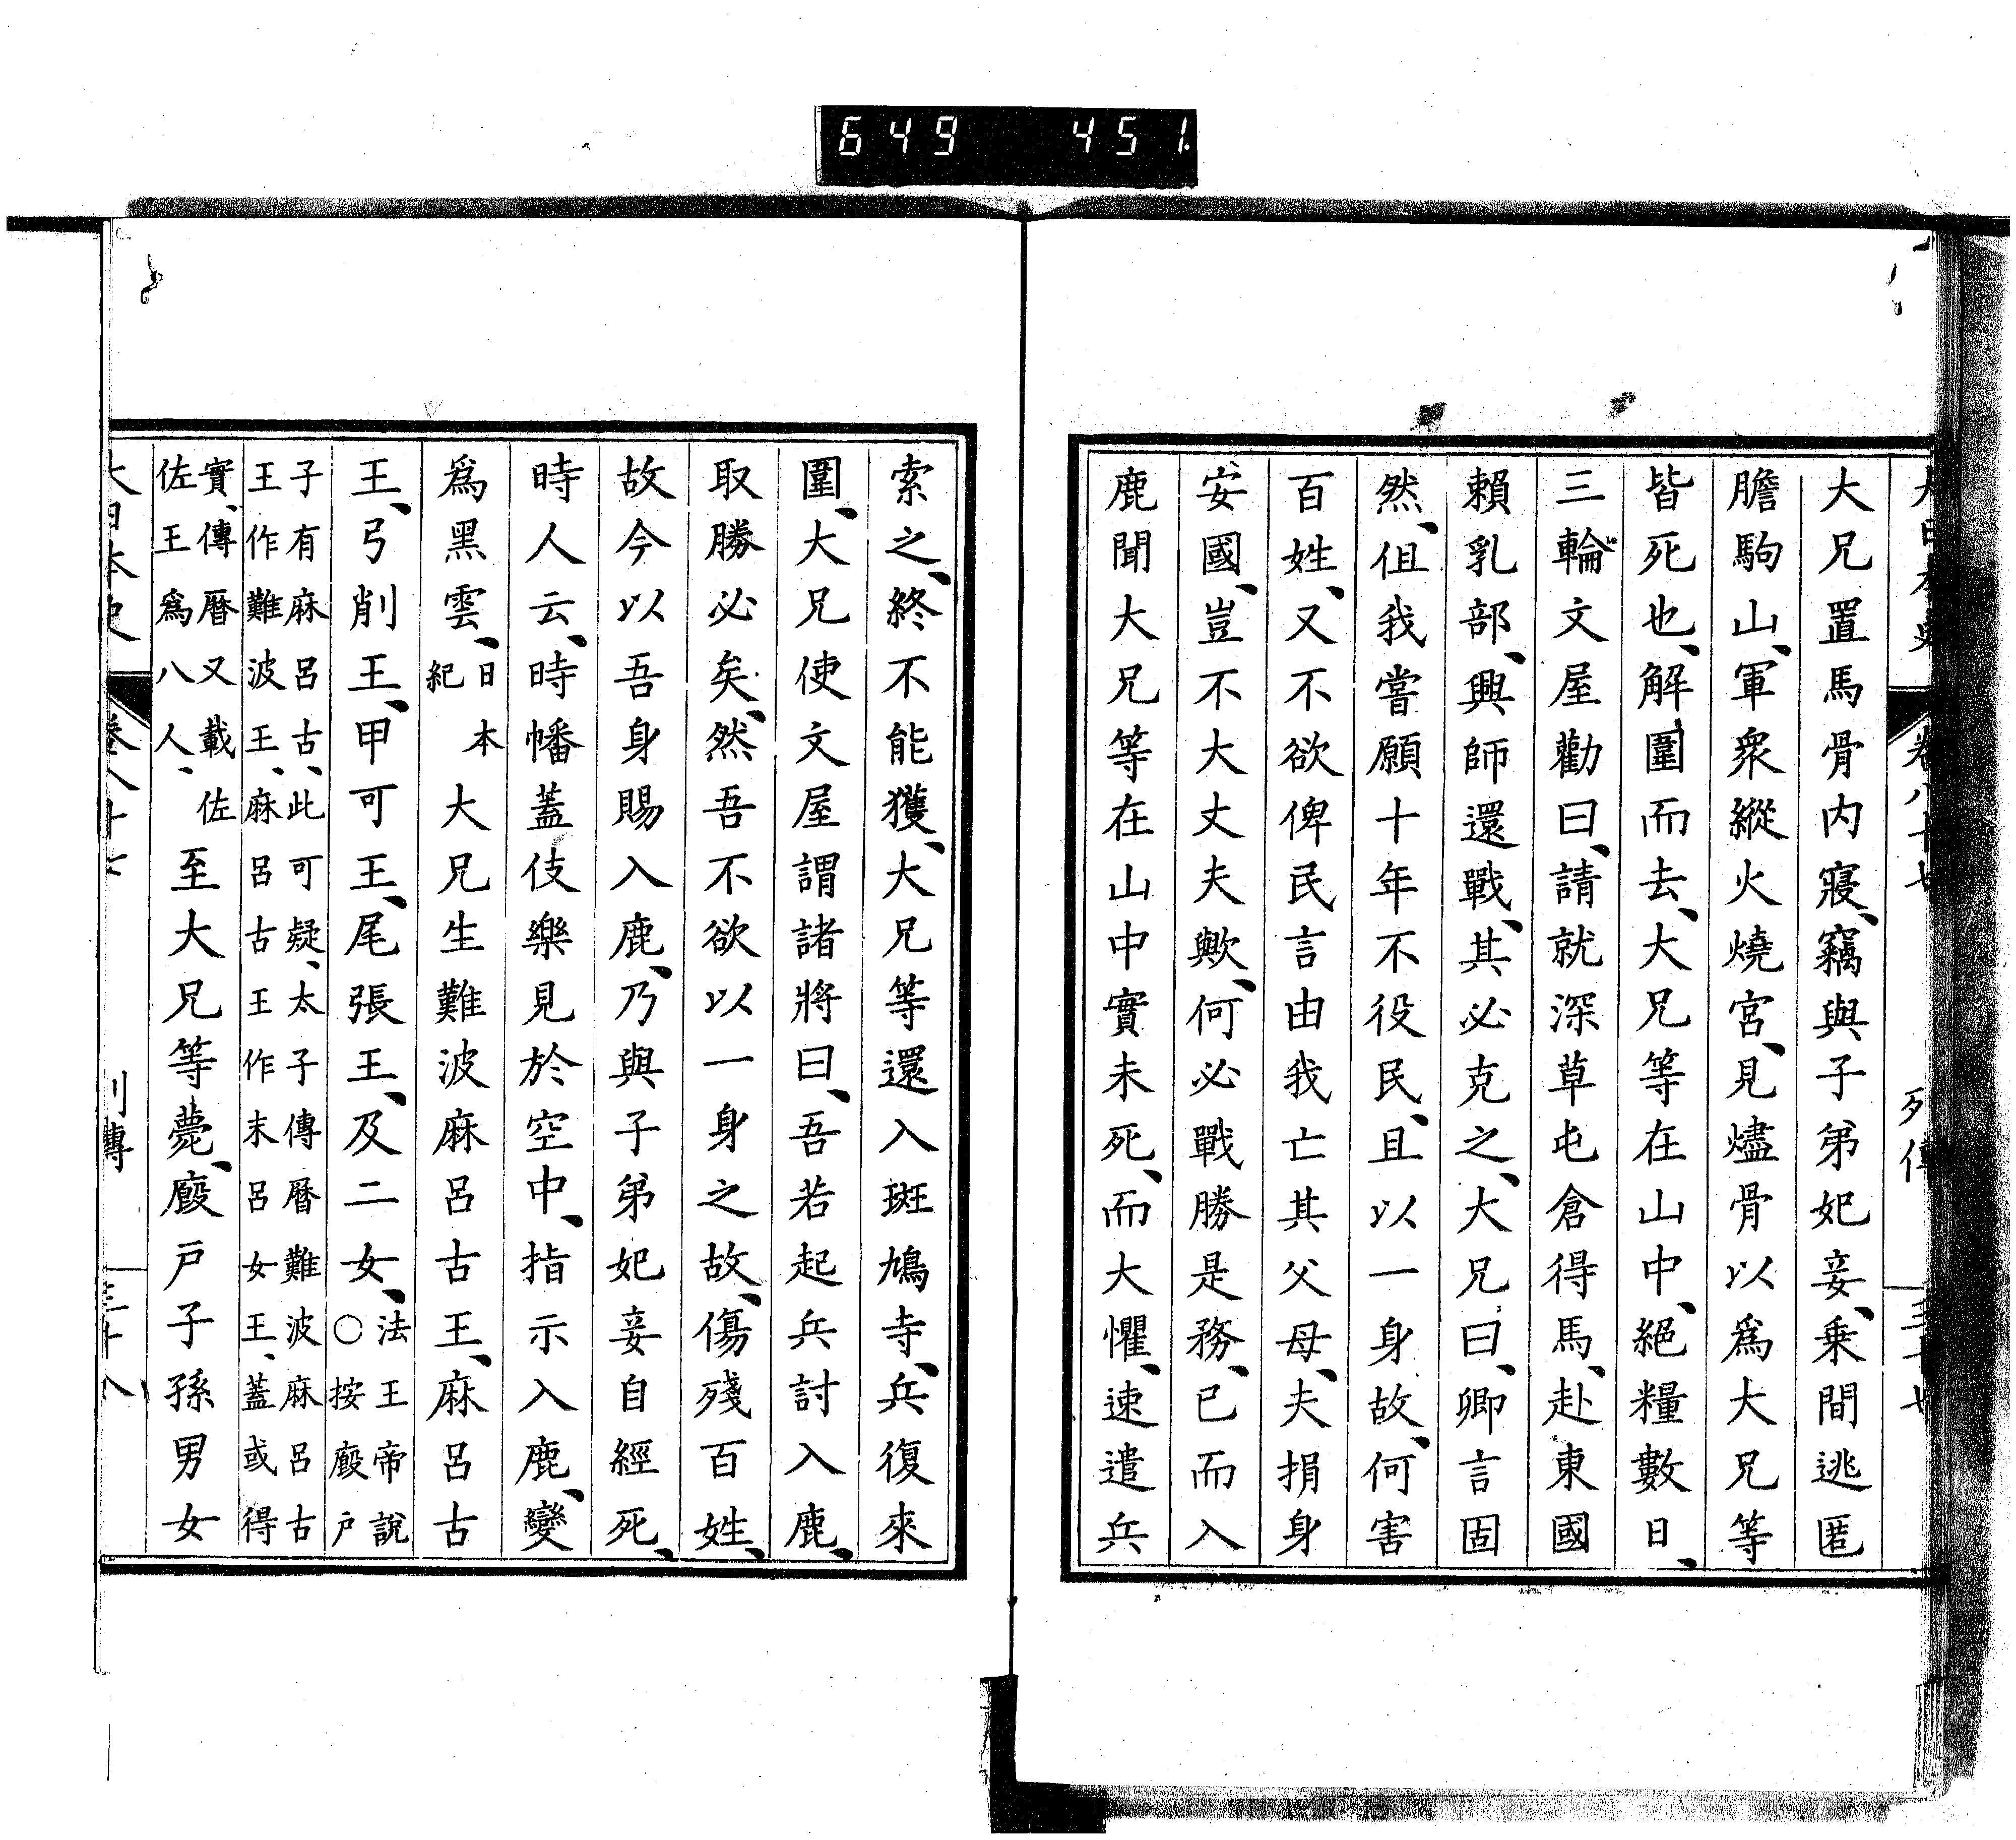 649 451.
大日本史 卷八十七 列傳 三十七
大兄置馬骨內寢、竊與子弟妃妾、乗間逃匿
膽駒山、軍衆縱火燒宮、見燼骨以爲大兄等
皆死也、解圍而去、大兄等在山中、絕糧數日、
三輪文屋勸曰、請就深草屯倉得馬、赴東國
賴乳部、興師還戰、其必克之、大兄曰、卿言固
然、伹我當願十年不役民、且以一身故、何害
百姓、又不欲俾民言由我亡其父母、夫捐身
安國、豈不大丈夫歟、何必戰勝是務、已而入
鹿聞大兄等在山中實未死、而大懼、速遣兵
索之、終不能獲、大兄等還入斑鳩寺、兵復來
圍、大兄使文屋謂諸將曰、吾若起兵討入鹿、
取勝必矣、然吾不欲以一身之故、傷殘百姓、
故今以吾身賜入鹿、乃與子弟妃妾自經死、
時人云、時幡蓋伎樂見於空中、指示入鹿、變
爲黑雲、日本紀 大兄生難波麻呂古王、麻呂古
王、弓削王、甲可王、尾張王、及二女、法王帝說○按廏戶
子有麻呂古、此可疑、太子傳曆難波麻呂古
王作難波王、麻呂古王作末呂女王、蓋或得
實、傳曆又載佐
佐王爲八人、 至大兄等薨、廏戶子孫男女
大日本史 卷八十七 列傳 三十八